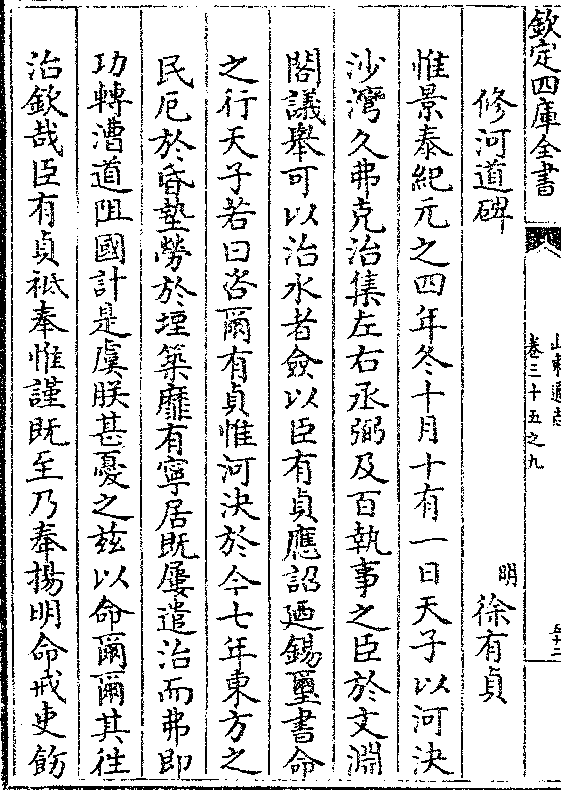 欽定四庫全書
山東通志
卷三十五之九
修河道碑
明
徐有貞
惟景泰紀元之四年冬十月十有一日天子以河決
沙灣久弗克治集左右丞弼及百執事之臣於文淵
閣議舉可以治水者僉以臣有貞應詔廼錫璽書命
之行天子若曰咨爾有貞惟河決於今七年東方之
民厄於昏墊勞於堙築靡有寧居既屢遣治而弗即
功轉漕道阻國計是虞朕甚憂之兹以命爾爾其往
治欽哉臣有貞祗奉惟謹既至乃奉揚明命戒吏飭